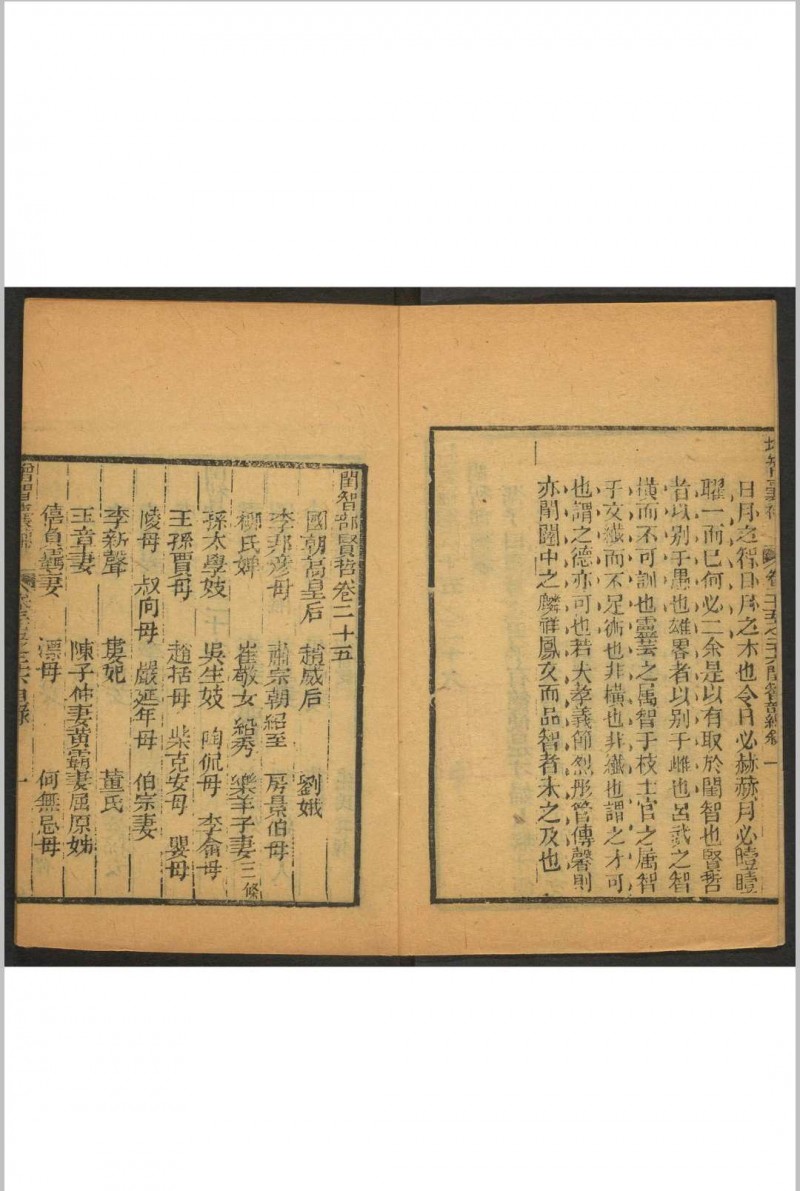 日月之智日月之木也令日必赫赫月必曀曀
耀一而已何必二余是以有取於閨智也賢哲
者以别于愚也雄畧者以别于雌也呂武之智
橫而不可訓也靈芸之屬智于枝士官之屬智
于文纎而不足術也非橫也非纎也謂之才可
也謂之德亦可也若夫孝義節烈彤管傳馨則
亦閨闥中之麟祥鳳亥而品智者未之及也
閨智部賢哲卷二十五
國朝高皇后 趙威后 劉娥
李邦彦母 肅宗朝紹至 房景伯母
柳氏婢 崔敬女 紹秀 樂羊子妻三條
孫太學妓 吳生妓 陶侃母 李畬母
王孫賈母 趙括母 柴克安母 嬰母
陵母 叔向母 嚴延年母 伯宗妻
李新聲 婁妃 董氏
王章妻 陳子仲妻黄霸妻屈原姊
僖負羈妻 漂母 何無忌母